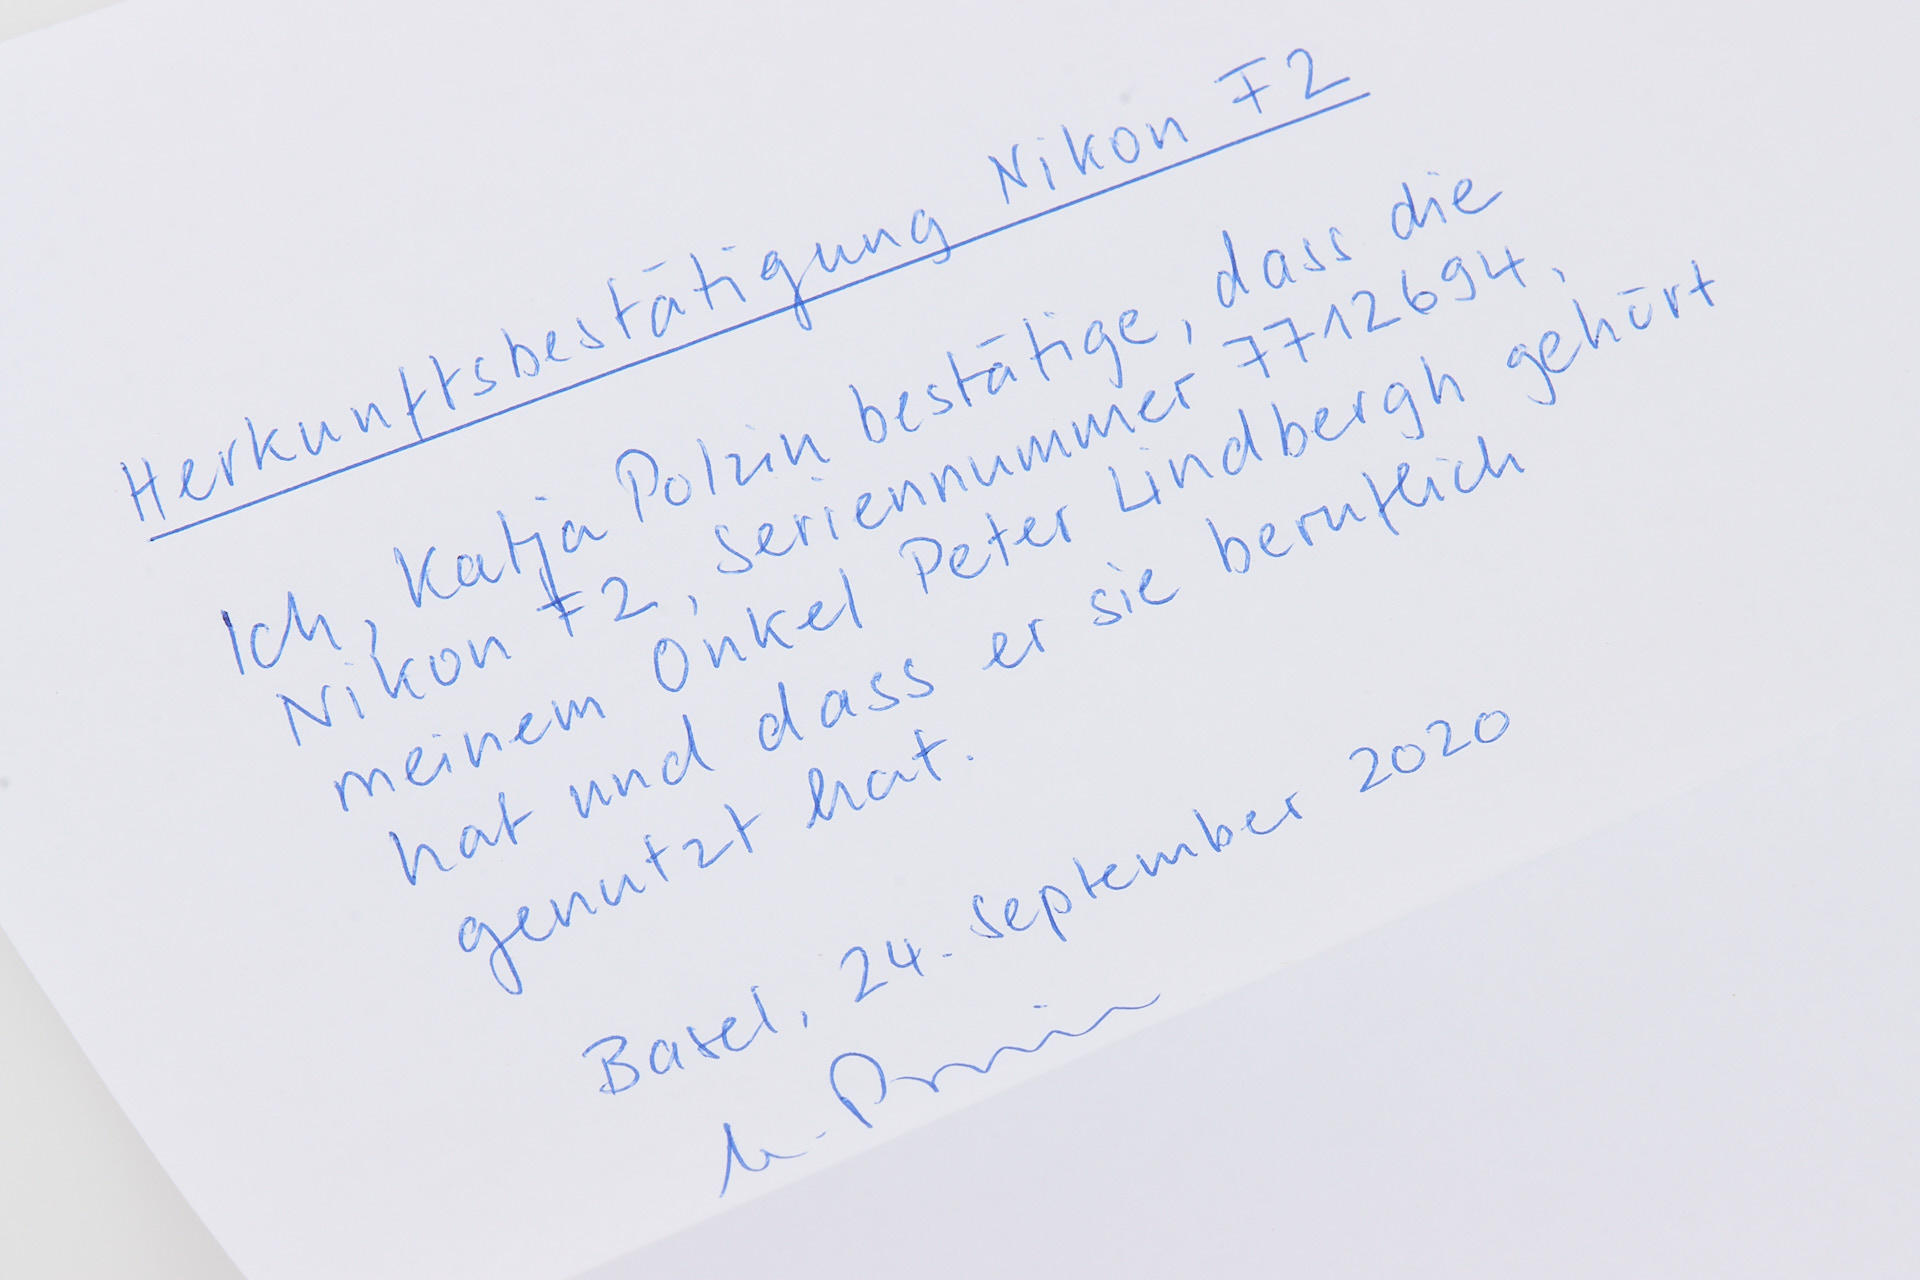 Herkunftsbestätigung Nikon F2
Ich, Katja Polzin bestätige, dass die
Nikon F2, Seriennummer 7712694,
meinem Onkel Peter Lindbergh gehört
hat und dass er sie beruflich
genutzt hat.
Basel, 24. September 2020
K. Polzin